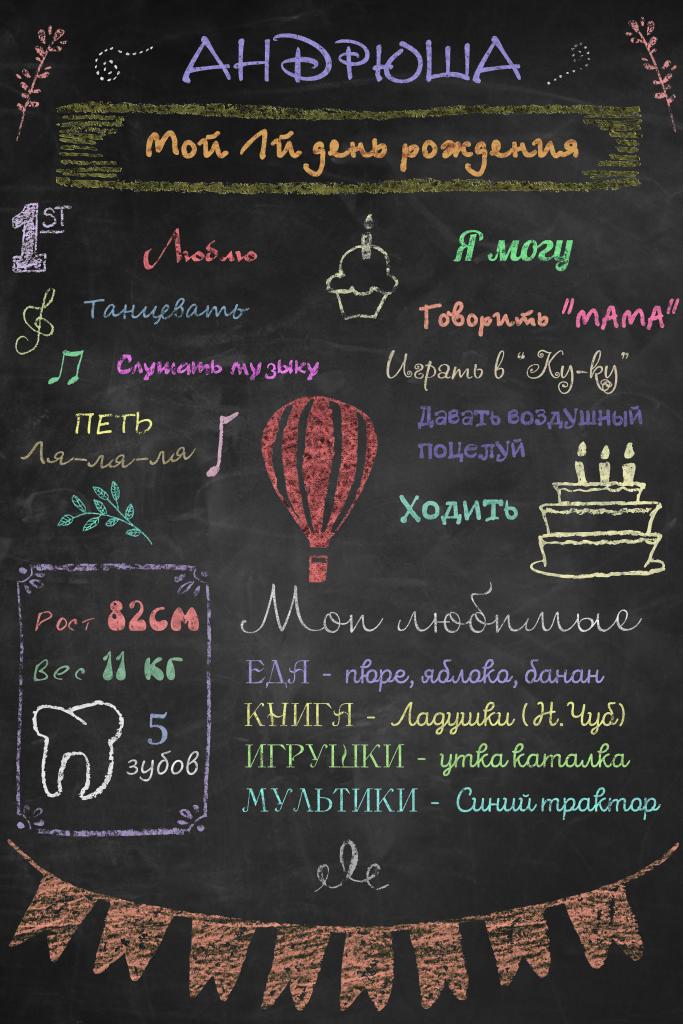 АНДРЮША
Мой 1й день рождения
1ST
Люблю
Я могу
Танцевать
Говорить "МАМА"
Слушать музыку
Играть в "Ку-ку"
ПЕТЬ
Ля-ля-ля
Давать воздушный
поцелуй
Ходить
Рост 82см
Вес 11 кг
5
зубов
Мои любимые
ЕДА - пюре, яблоко, банан
КНИГА - Ладушки (Н. Чуб)
ИГРУШКИ - утка каталка
МУЛЬТИКИ - Синий трактор